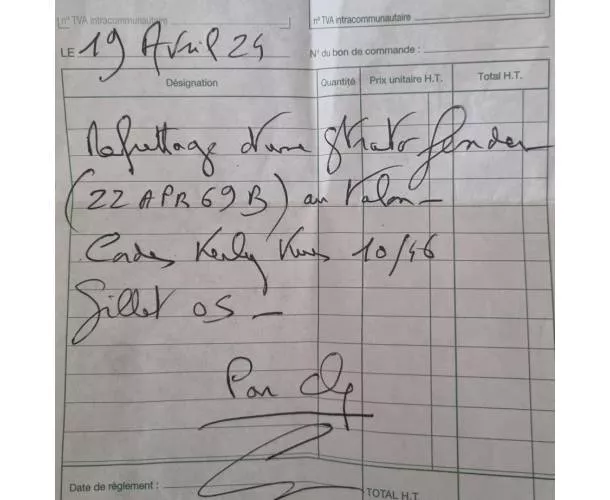 n° TVA intracommunautaire
n° TVA intracommunautaire
LE 19 Avril 24
N° du bon de commande :
Désignation Quantité Prix unitaire H.T. Total H.T.
Refrettage d'une strato fender
(22 APR 69 B) au talon -
Cordes Kerly Kues 10/46
Sillet os -
Par
Date de règlement :
TOTAL H.T.